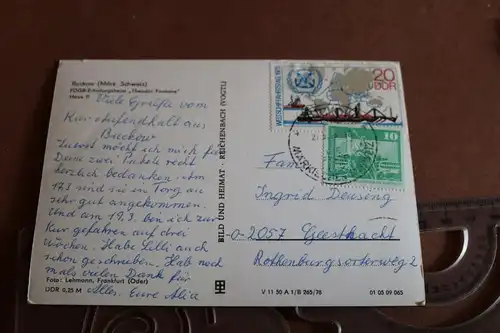 Buckow (Märk. Schweiz)
FDGB-Erholungsheim „Theodor Fontane"
Haus
Viele Grüße vom
Kuraufenthalt aus
Buckow.
Zuerst möcht ich mich für
Deine zwei Pakete recht
herzlich bedanken. Am
17.3 sind sie in Torgau
sehr gut angekommen.
Und am 19.3. bin ich zur
Kur gefahren auf drei
Wochen. Habe Lilli auch
schon geschrieben. Hab noch
mals vielen Dank für
Alles. Eure
Foto: Lehmann, Frankfurt (Oder)
DDR 0,25 M
BILD UND HEIMAT · REICHENBACH (VOGTL)
V 11 50 A 1/B 265/78
01 05 09 065
20
DDR
10
Fam.
Ingrid
O-2057 Geesthacht
Rothenburgsorterweg 2